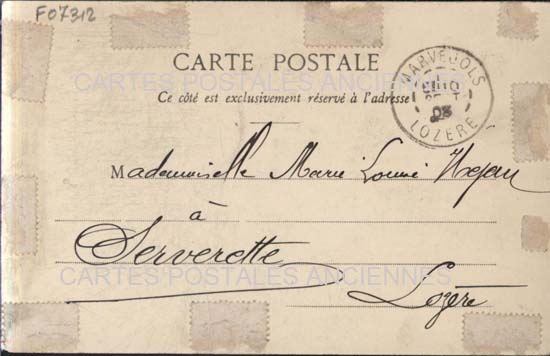 F07312
CARTE POSTALE
CARTES POSTALES ANCIENNES
Ce côté est exclusivement réservé à l'adresse
MARVEJOLS
03
LOZERE
Mademoiselle Marie Louise
à
Serverette
CARTES POSTALES ANCIENNES
Lozère